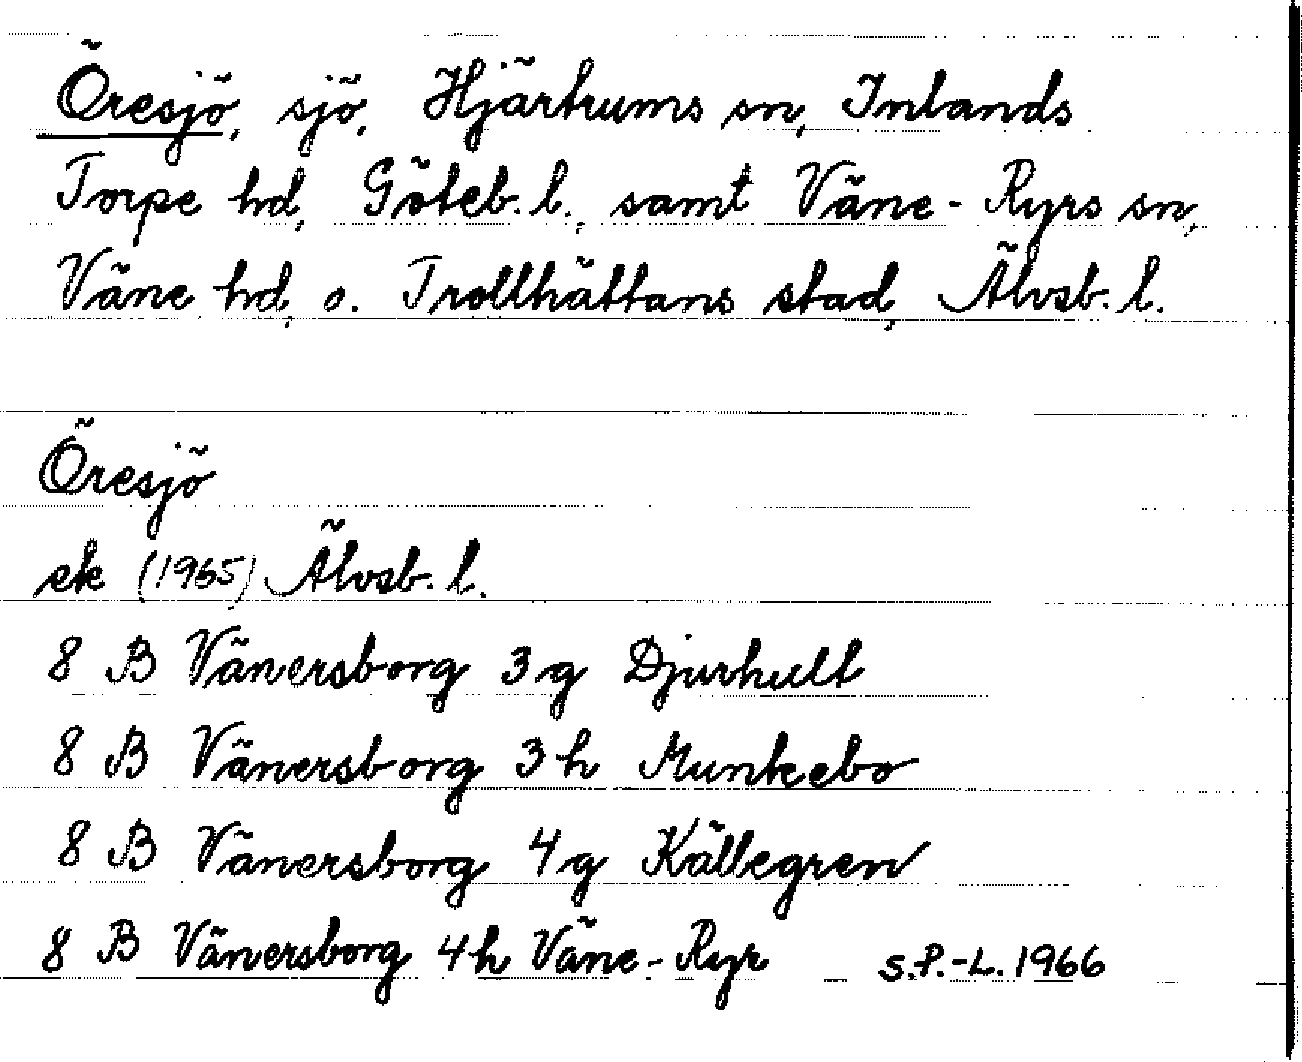 Öresjö, sjö, Hjärtums sn, Inlands
Torpe hd, Göteb. l., samt Väne-Ryrs sn,
Väne hd, o. Trollhättans stad, Älvsb. l.
Öresjö
ek (1965) Älvsb. l.
8 B Vänersborg 3g Djurhult
8 B Vänersborg 3h Munkebo
8 B Vänersborg 4g Källegren
8 B Vänersborg 4h Väne-Ryr S.P.-L. 1966